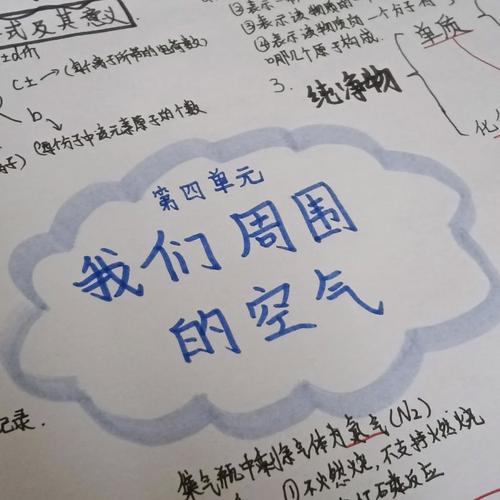 式及其意义
C± → (每个离子所带的电荷数)
b
(每个分子中该元素原子的个数)
②表示一
③表示该物质的一个分子
④表示该物质的一个分子有
哪几个原子构成.
3. 纯净物
单质
化
第四单元
我们周围
的空气
记录.
集气瓶中剩余气体为氮气(N₂)
①不燃烧,不支持燃烧